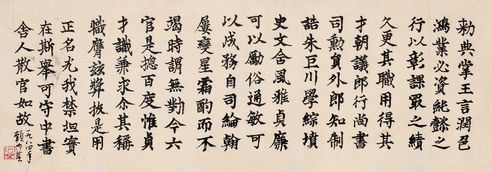 勑典掌王言潤色
鴻業必資純懿之
行以彰課最之績
久更其職用得其
才朝議郎行尚書
司勳員外郎知制
誥朱巨川學綜墳
史文含風雅貞廉
可以勵俗通敏可
以成務自司綸翰
屢變星霜酌而不
竭時謂無對今六
官是揔百度惟貞
才識兼求僉其稱
職膺兹獎拔是用
正名光我禁垣實
在斯舉可守中書
舍人散官如故
一九八四年